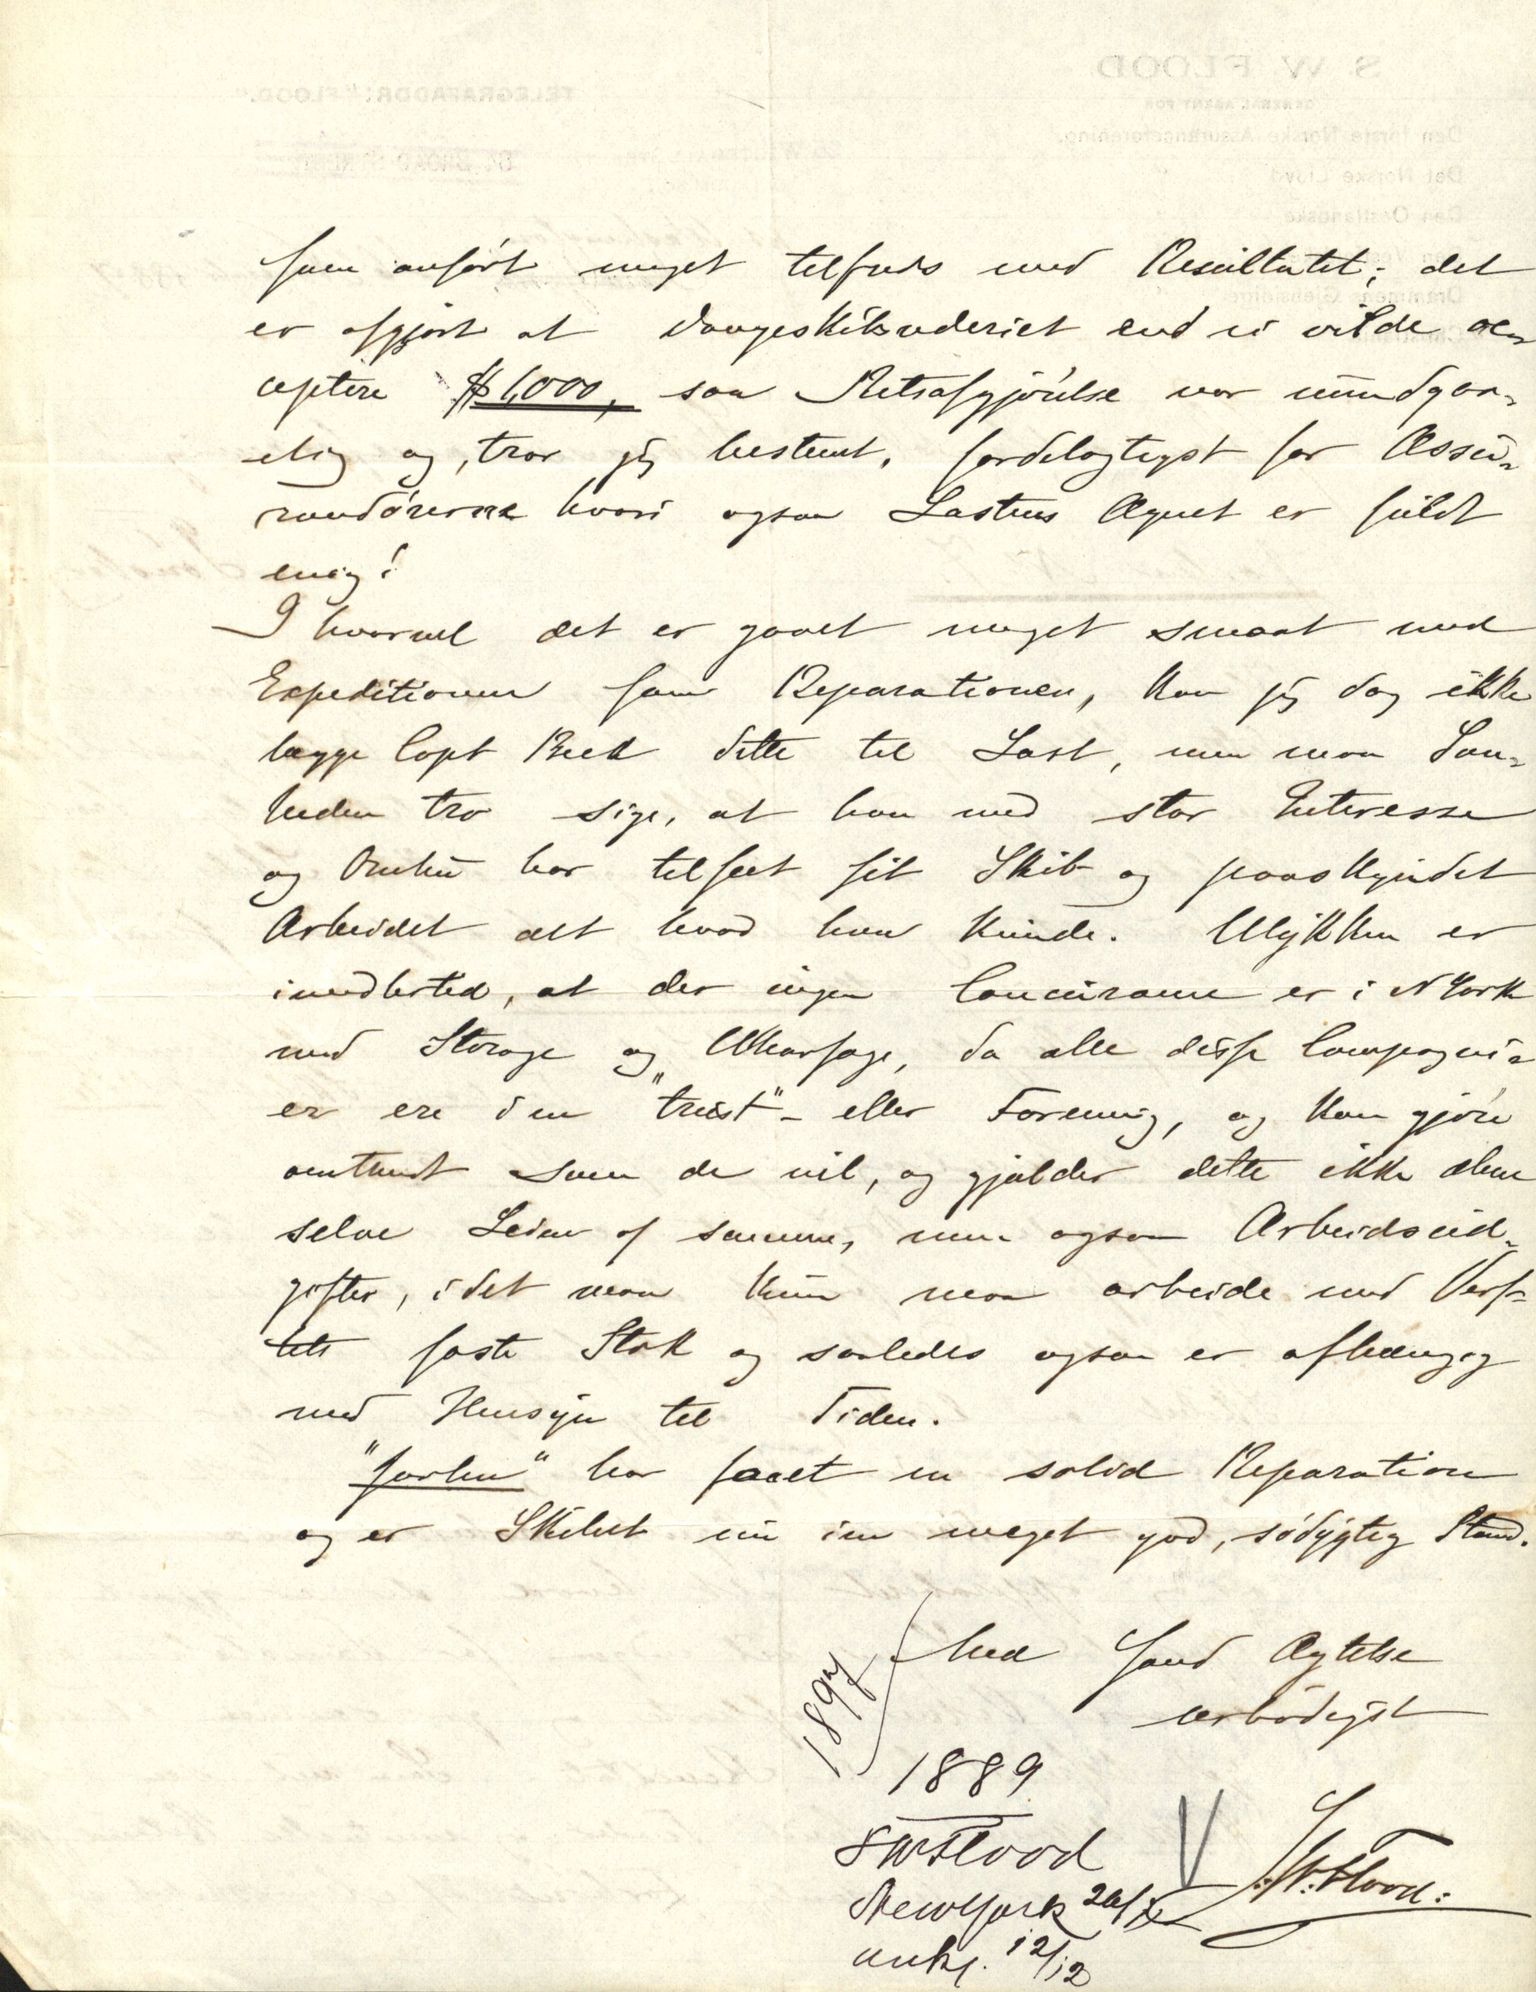 som anført meget tilfreds med Resultatet; det
er afgjort at end vi vilde ac-
ceptere $1,000, saa Retsafgjørelse var uundgaa-
elig og, tror jeg bestemt, fordelagtigst for Assu-
randørerne hvori ogsaa Lastens Agent er fuldt
enig!
I hvorvel det er gaaet meget smaat med
Expeditionen som Reparationen, kan jeg dog ikke
lægge Capt Beck dette til Last, men maa San-
heden tro sige, at han med stor Interesse
og Omhu har tilseet sit Skib og paaskyndet
Arbeidet alt hvad han kunde. Ulykken er
imidlertid, at der ingen Concurrance er i N York
med Storage og Wharfage, da alle disse Compagni-
er ere i en "trust"- eller Forening, og kan gjøre
omtrendt som de vil, og gjælder dette ikke alene
selve Leien af samme, men ogsaa Arbeidsud-
gifter, idet man kun maa arbeide med Verf-
tets faste Stok og saaledes ogsaa er afhængig
med Hensyn til Tiden.
har faaet en solid Reparation
og er Skibet nu i en meget god, sødygtig Stand.
Med sand Agtelse
ærbødigst
S. W. Flood.
1897
1889
SWFlood
New York 26/11
ank. 12/12
S W FLOOD
GENERAL AGENT FOR
TELEGRAFADDR: "FLOOD."
Den første Norske Assuranceforening,
Det Norske Lloyd
Den Oestlandske